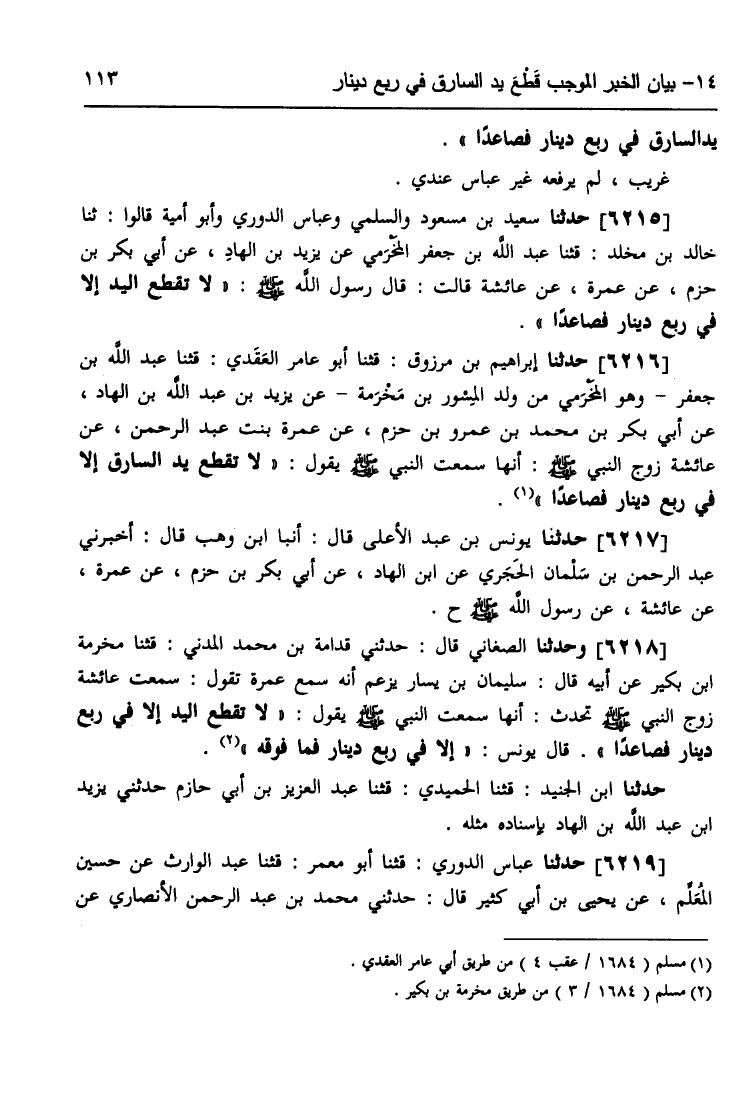 ١٤- بيان الخبر الموجب قَطْعَ يد السارق في ربع دينار ١١٣
يدالسارق في ربع دينار فصاعدًا » .
غريب ، لم يرفعه غير عباس عندي .
[٦٢١٥] حدثنا سعيد بن مسعود والسلمي وعباس الدوري وأبو أمية قالوا : ثنا
خالد بن مخلد : قثنا عبد اللَّه بن جعفر المَخْرَمي عن يزيد بن الهادِ ، عن أبي بكر بن
حزم ، عن عمرة ، عن عائشة قالت : قال رسول اللَّه ﷺ : « لا تقطع اليد إلا
في ربع دينار فصاعدًا » .
[٦٢١٦] حدثنا إبراهيم بن مرزوق : قثنا أبو عامر العَقَدي : قثنا عبد اللَّه بن
جعفر – وهو المَخْرَمي من ولد المِسْور بن مَخْرَمة – عن يزيد بن عبد اللَّه بن الهاد ،
عن أبي بكر بن محمد بن عمرو بن حزم ، عن عمرة بنت عبد الرحمن ، عن
عائشة زوج النبي ﷺ : أنها سمعت النبي ﷺ يقول : « لا تقطع يد السارق إلا
في ربع دينار فصاعدًا »(١) .
[٦٢١٧] حدثنا يونس بن عبد الأعلى قال : أنبا ابن وهب قال : أخبرني
عبد الرحمن بن سَلْمان الحَجَري عن ابن الهاد ، عن أبي بكر بن حزم ، عن عمرة ،
عن عائشة ، عن رسول اللَّه ﷺ ح .
[٦٢١٨] وحدثنا الصغاني قال : حدثني قدامة بن محمد المدني : قثنا مخرمة
ابن بكير عن أبيه قال : سليمان بن يسار يزعم أنه سمع عمرة تقول : سمعت عائشة
زوج النبي ﷺ تحدث : أنها سمعت النبي ﷺ يقول : « لا تقطع اليد إلا في ربع
دينار فصاعدًا » . قال يونس : « إلا في ربع دينار فما فوقه »(٢) .
حدثنا ابن الجنيد : قثنا الحميدي : قثنا عبد العزيز بن أبي حازم حدثني يزيد
ابن عبد اللَّه بن الهاد بإسناده مثله .
[٦٢١٩] حدثنا عباس الدوري : قثنا أبو معمر : قثنا عبد الوارث عن حسين
المُعَلِّم ، عن يحيى بن أبي كثير قال : حدثني محمد بن عبد الرحمن الأنصاري عن
(١) مسلم ( ١٦٨٤ / عقب ٤ ) من طريق أبي عامر العقدي .
(٢) مسلم ( ١٦٨٤ / ٣ ) من طريق مخرمة بن بكير .